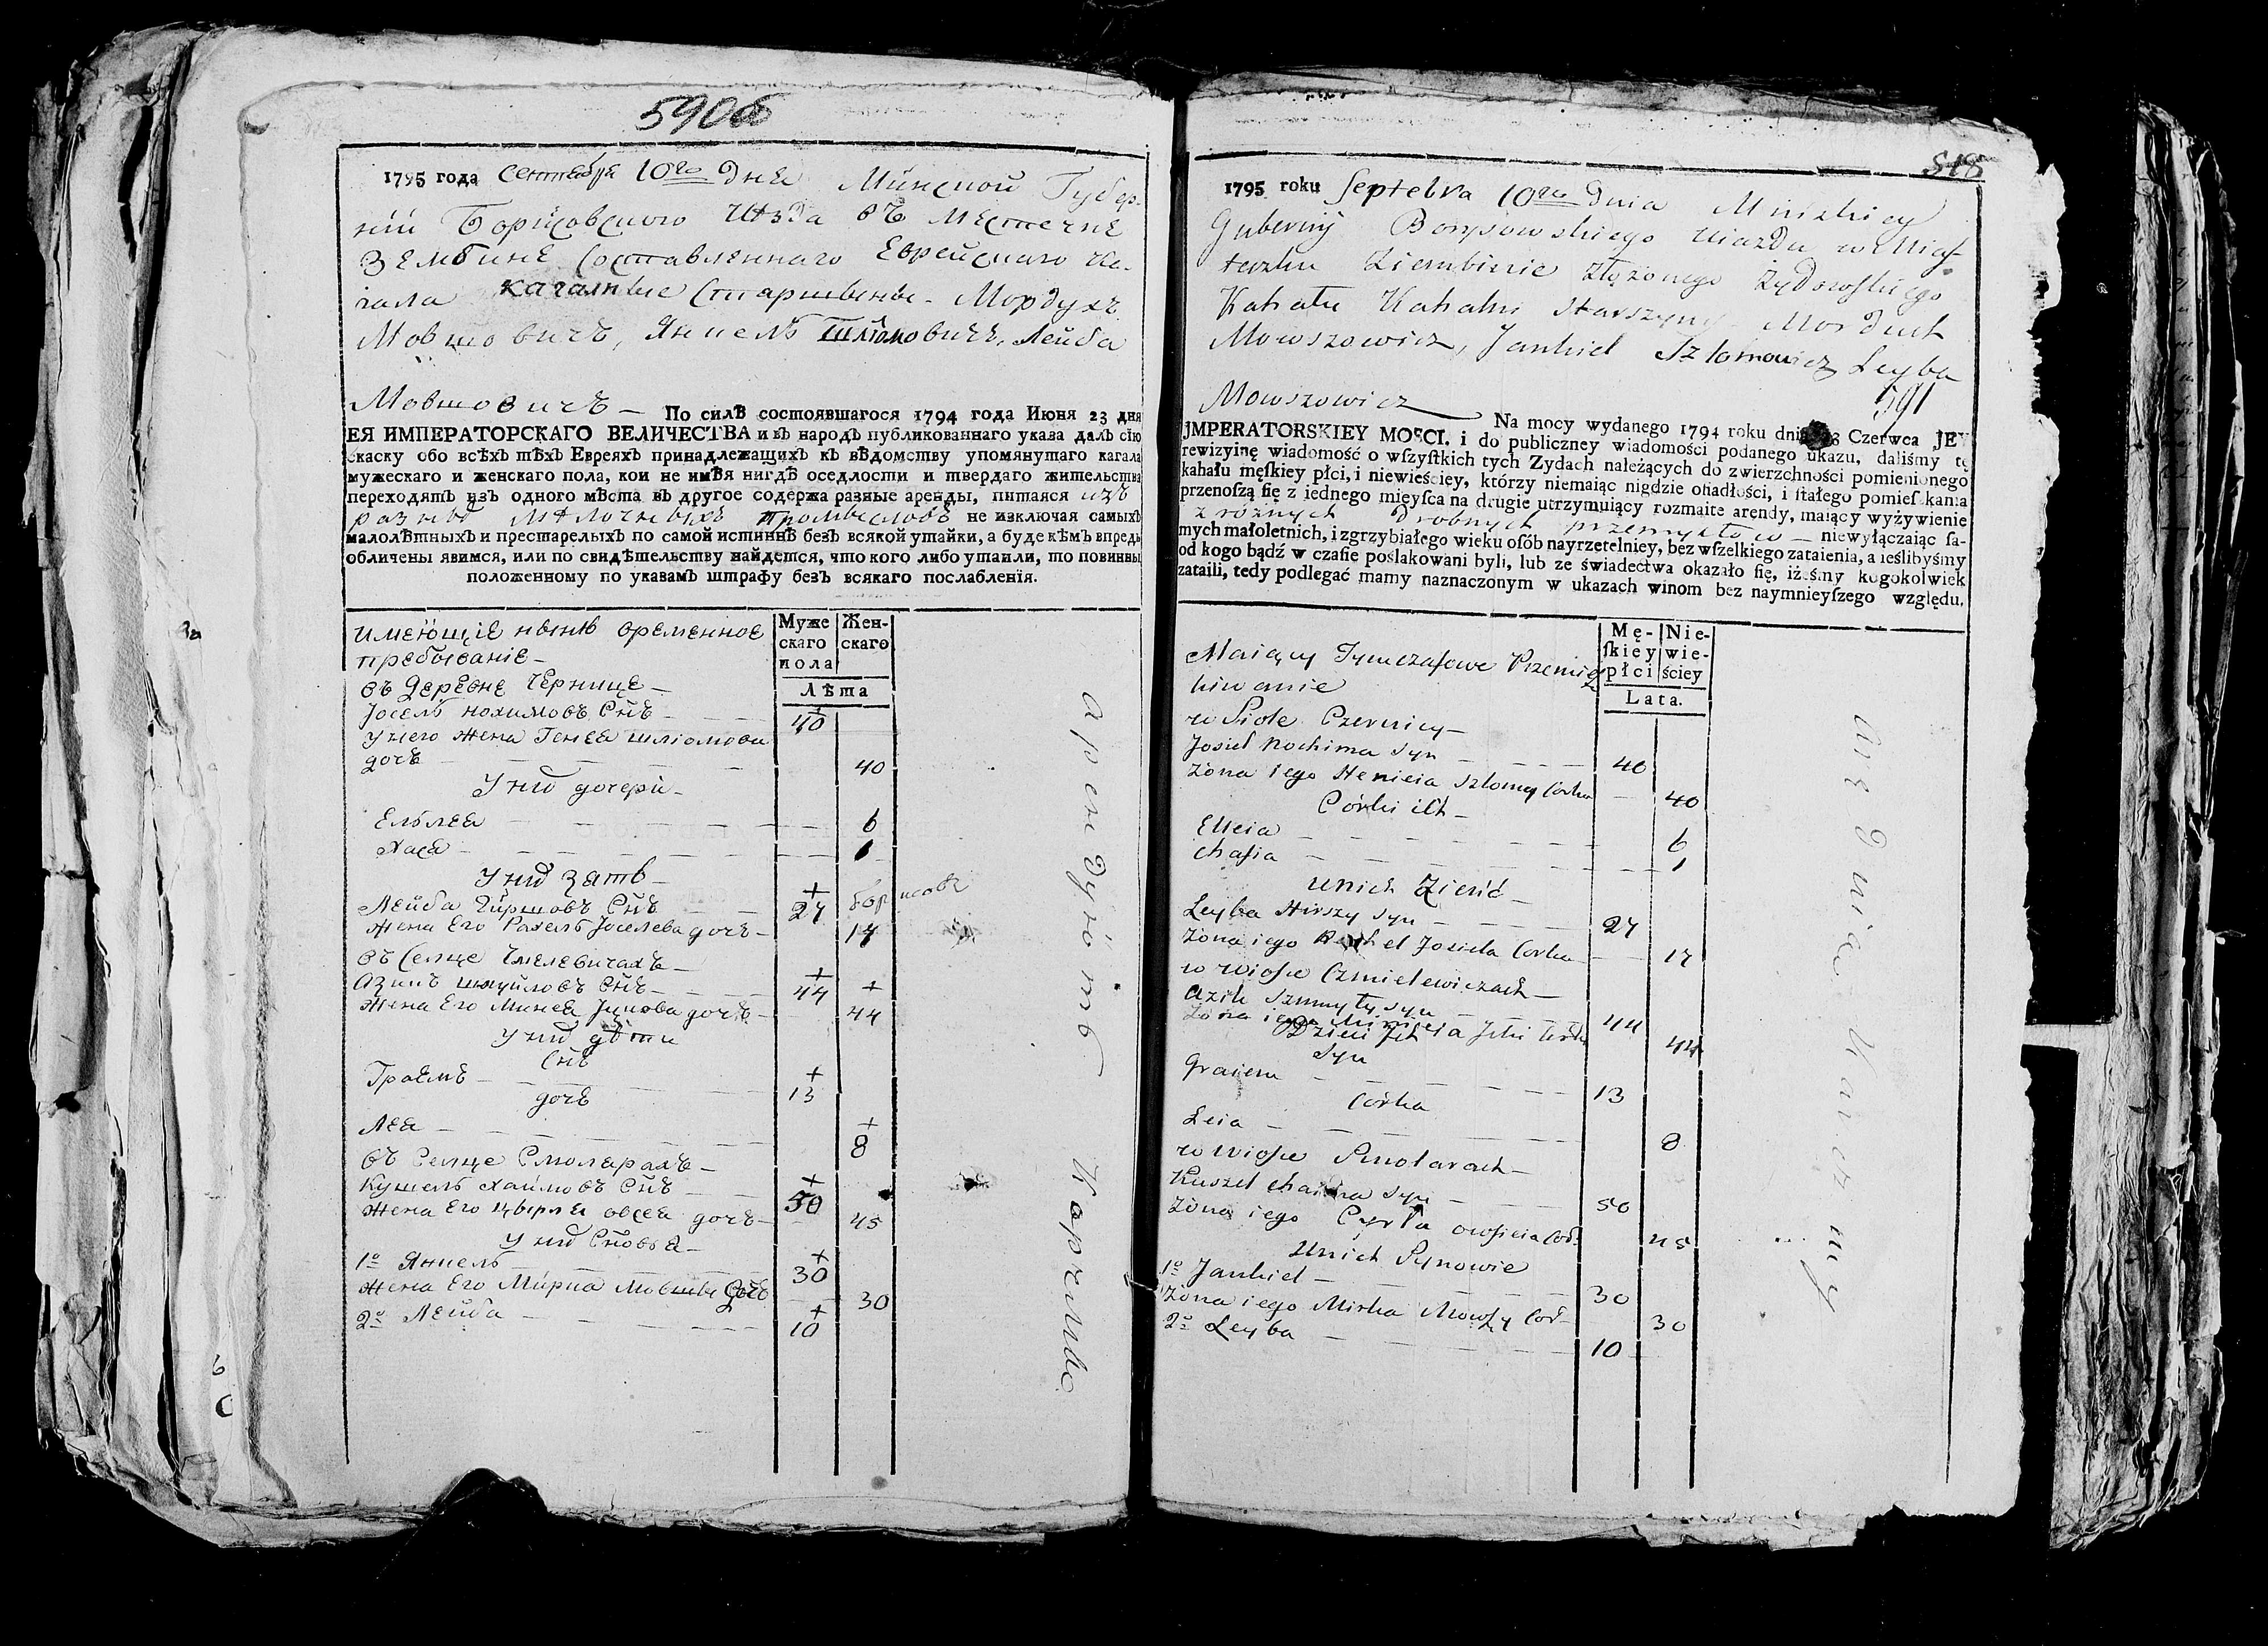 590об
1795 года сентября 10го дня Минской Губер-
нии Борисовского уезда въ местечке
Земbине составленнаго Еврейскаго ка-
гала кагалные старшыны - Мордухъ
Мовшовичъ, Янкель Шліомовичъ, Лейба
Мовшовичъ — По силѣ состоявшагося 1794 года Июня 23 дня
ЕЯ ИМПЕРАТОРСКАГО ВЕЛИЧЕСТВА и въ народъ публикованнаго указа далъ сію
скаску обо всѣхъ тѣхъ Евреяхъ принадлежащихъ къ вѣдомству упомянутаго кагала
мужескаго и женскаго пола, кои не имѣя нигдѣ оседлости и твердаго жительства
переходятъ изъ одного мѣста въ другое содержа разные аренды, питаяся изъ
разныхъ мѣлочныхъ промысловъ не изключая самыхъ
малолѣтныхъ и престарелыхъ по самой истиннѣ безъ всякой утайки, а буде кѣмъ впредь
обличены явимся, или по свидѣтельству найдется, что кого либо утаили, то повинны
положенному по указамъ штрафу безъ всякаго послабленія.
имеющіе ныне временное
пребываніе -
Муже
скаго
пола
Жен-
скаго
Лѣта
въ деревне Чернице -
Іосель Нохимовъ Снъ - + 40
у него жена Генея Шліомова
дочь - 40
у них дочери -
Ельлея - 6
Хася - 1
у них зять -
Лейба Гиршовъ Снъ - + 27 борисовъ
жена Его Рахель Іоселева дочь - 17
въ Селце Чмелевичахъ -
Азикъ Шмуйловъ Снъ - + 44 +
жена Его Минея Іцкова дочь - 44
у них дѣти
Снъ
Граемъ - + 13
дочь
Лея - + 8
въ Селце Смолярахъ -
Кушель Хаимовъ Снъ - + 50
жена Его Цырля овсея дочь - 45
у них Сновья -
1о Янкель - + 30
жена Его Мирка Мовшы дочь - 30
2о Лейба - + 10
арендуютъ Корчмы
518
1795 roku Septebra 10go Dnia Minskiey
Gubernij Borysowskiego Uiazdu w Mias-
teczku Ziembinie złożonego Żydowskiego
Kahału Kahalni Starszyny Morduch
Mowszowicz, Jankiel Szlomowicz Leyba
591
Mowszowicz — Na mocy wydanego 1794 roku dnia 23 Czerwca JEY
JMPERATORSKIEY MOSCI. i do publiczney wiadomości podanego ukazu, daliśmy tę
rewizyinę wiadomość o wſzyſtkich tych Zydach należących do zwierzchności pomienionego
kahału męſkiey płci, i niewieściey, którzy niemaiąc nigdzie oſiadłości, i ſtałego pomieſzkania
przenoſzą ſię z iednego mieyſca na drugie utrzymuiący rozmaite arendy, maiący wyżywienie
z różnych drobnych przemysłow — niewyłączaiąc ſa-
mych małoletnich, i zgrzybiałego wieku osób nayrzetelniey, bez wſzelkiego zataienia, a ieślibyśmy
od kogo bądź w czaſie poślakowani byli, lub ze świadectwa okazało ſię, iżeśmy kogokolwiek
zataili, tedy podlegać mamy naznaczonym w ukazach winom bez naymnieyſzego względu.
Maiący Tymczaſowe Przemię
kiwanie
Mę-
ſkiey
płci
Nie-
wie-
ściey
Lata.
w Siole Czernicy -
Josiel Nochima Syn - 40
żona iego Henieia Szlomy Corka - 40
Córki ich -
Elleia - 6
Chaſia - 1
u nich Zienć -
Leyba Hirszy Syn - 27
żona iego Rachel Josiela Corka - 17
w wiosce Czmielewiczach -
Azik Szmuyły Syn - 44
żona iego Minieia Jcki Corka 44
Dzieci Jch
Syn
Graiem - 13
Corka
Leia - 8
w wiosce Smolarach -
Kuszel Chaima Syn - 50
żona iego Cyrla owsieia Cor - 45
u nich Synowie
1o Jankiel - 30
żona iego Mirka Mowszy Cor - 30
2o Leyba - 10
arenduią Karczmy